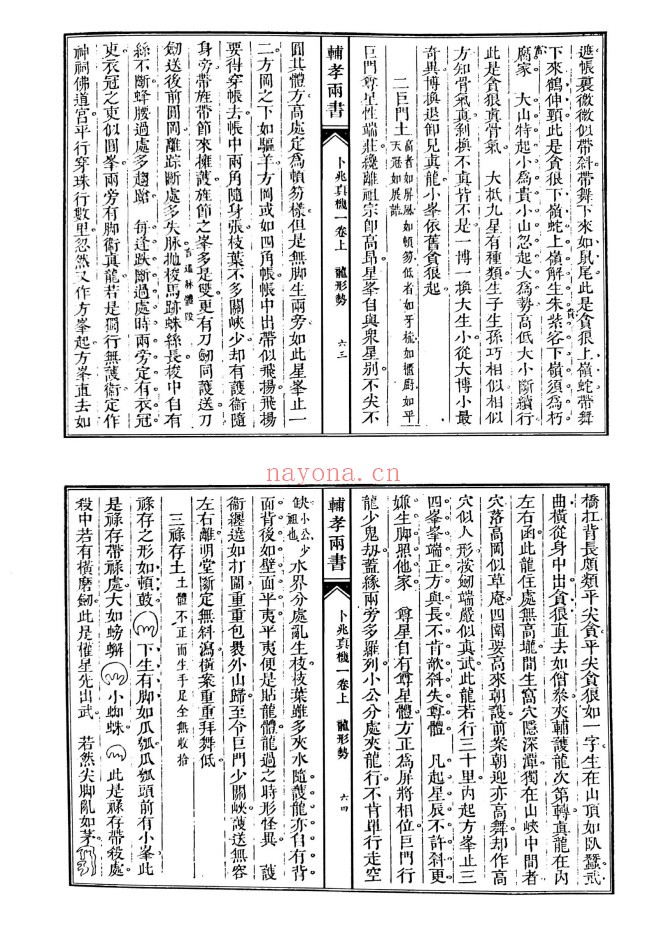 遮帳裏微微似帶斜帶舞下來如鼠尾此是貪狼上嶺蛇帶舞
下來鶴伸頸此是貪狼下嶺蛇上嶺解生朱紫客下嶺須為朽
腐家　大山特起小為貴小山忽起大為勢高低大小斷續行
此是貪狼真骨氣　大抵九星有種類生子生孫巧相似相似
方知骨氣真剝換不真皆不是一博一換大生小從大博小最
奇異博換退卸見真龍小峯依舊貪狼起
二巨門土　高者如屏風如頓笏低者如牙梳如櫃廚如平天冠如展誥
巨門尊星性端莊纔離祖宗師高昂星峯自與衆星別不尖不
輔孝兩書
卜兆真機一卷上　龍形勢
六三
圓其體方高處定為頓笏樣但是無脚生兩旁如此星峯止一
二方岡之下如驅羊方岡或如四角帳帳中出帶似飛揚飛揚
要得穿帳去帳中兩角隨身張枝葉不多關峽少却有護衞隨
身旁帶旌帶節來擁護旌節之峯多是雙更有刀劒同護送刀
劒送後前圓岡離踪斷處多失脉抛梭馬跡蛛絲長梭中自有
絲不斷蜂腰過處多趨蹌　每逢跌斷過處時兩旁定有衣冠
吏衣冠之吏似圓峯兩旁有脚衞真龍若是獨行無護衞定作
神祠佛道宮平行穿珠行數里忽然又作方峯起方峯直去如
橋扛背長頗類平尖貪平尖貪狼如一字生在山頂如臥蠶弐
曲橫從身中出貪狼直去如僧叅夾輔護龍次第轉真龍在内
左右函此龍住處無高壠間生窩穴隱深潭獨在山峽中間者
穴落高岡似草庵四圍要高來朝護前案朝迎亦高舞却作高
穴似人形按劒端嚴似真武此龍若行三十里内起方峯止三
四峯峯端正方與長不肯欹斜失尊體　凡起星辰不許斜更
嫌生脚照他家　尊星自有尊星體方正為屏將相位巨門行
龍少鬼刧蓋緣兩旁多羅列小公分處夾龍行不肯單行走空
輔孝兩書
卜兆真機一卷上　龍形勢
六四
缺小公少祖也水界分處亂生枝枝葉雖多夾水隨護龍亦自有背
面背後如壁面平夷平夷便是貼龍體龍過之時形怪異　護
衞纏遶如打圍重重包裹外山歸至令巨門少關峽護送無容
左右離明堂斷定無斜瀉横案重重拜舞低
三祿存土　土體不正而生手足全無收拾
祿存之形如頓鼓　下生有脚如瓜瓠瓜瓠頭前有小峯此
是祿存帶祿處大如螃蠏　小蜘蛛　此是祿存帶殺處
殺中若有橫磨劒此是權星先出武　若然尖脚亂如茅
nayona.cn